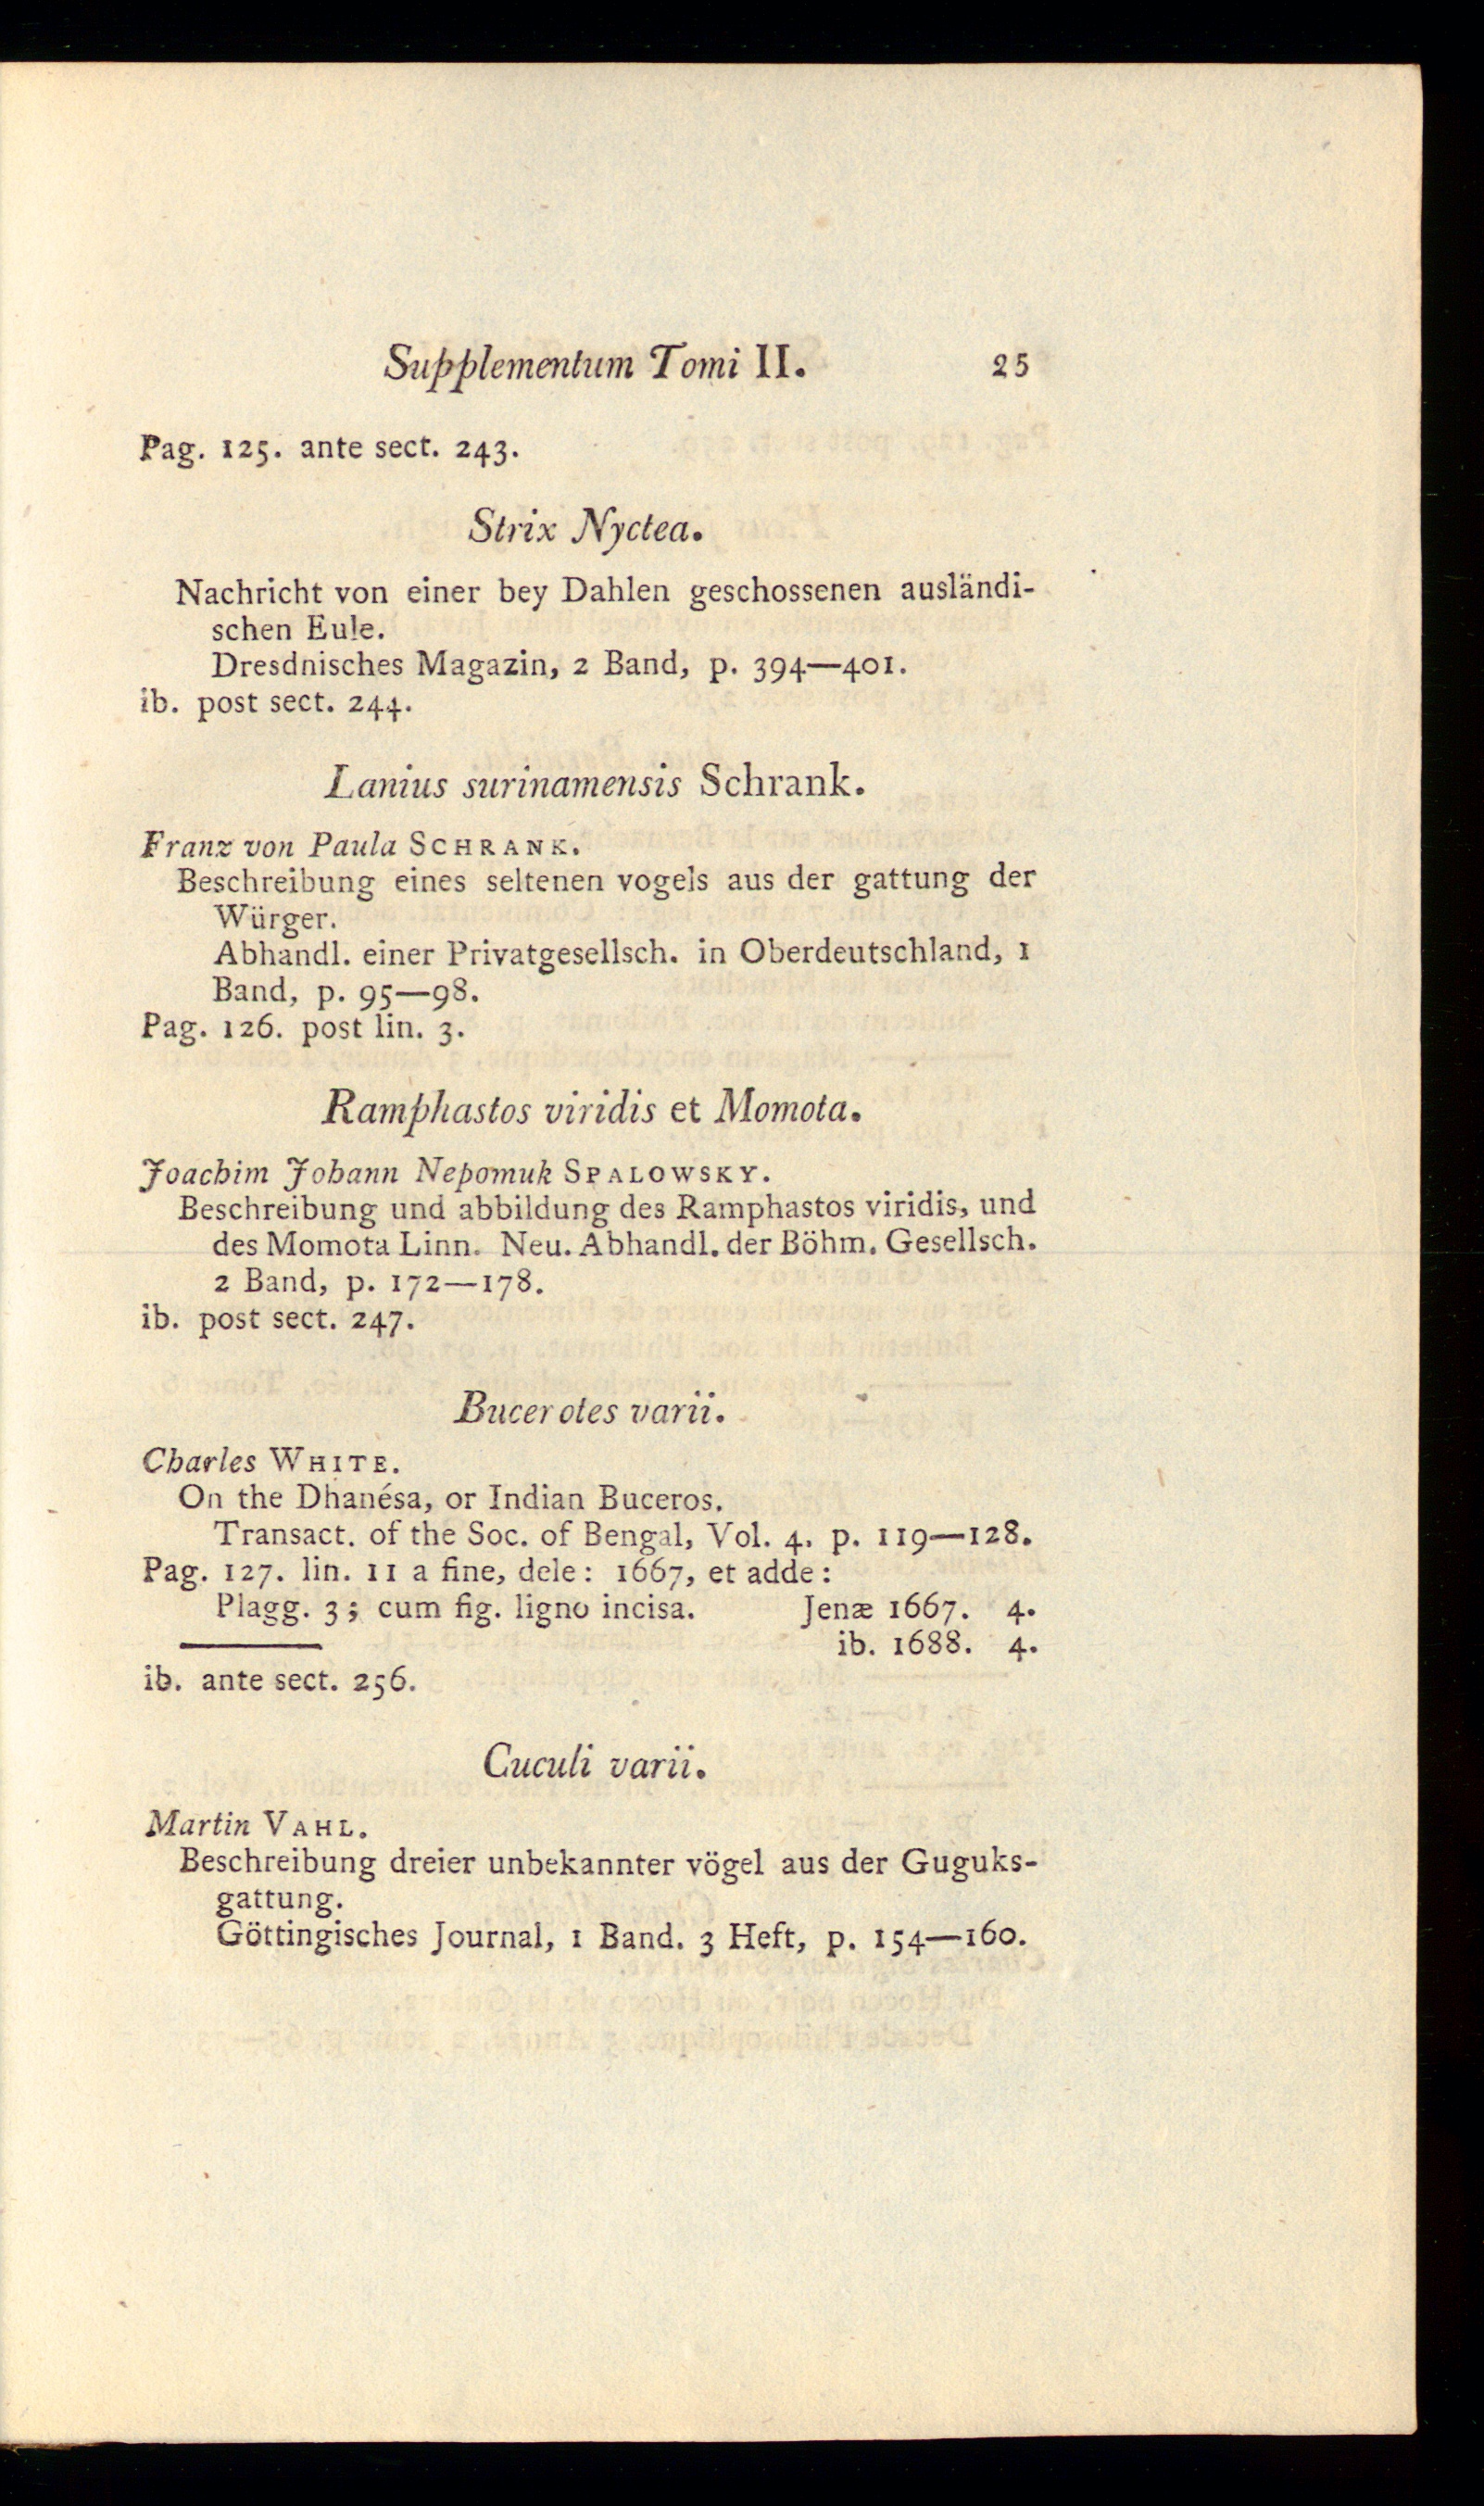 Supplementum Tomi II. 25
Pag. 125. ante sect. 243.
Strix Nyctea.
Nachricht von einer bey Dahlen geschossenen ausländi-
schen Eule.
Dresdnisches Magazin, 2 Band, p. 394—401.
ib. post sect. 244.
Lanius surinamensis Schrank.
Franz von Paula SCHRANK.
Beschreibung eines seltenen vogels aus der gattung der
Würger.
Abhandl. einer Privatgesellsch. in Oberdeutschland, 1
Band, p. 95—98.
Pag. 126. post lin. 3.
Ramphastos viridis et Momota.
Joachim Johann Nepomuk SPALOWSKY.
Beschreibung und abbildung des Ramphastos viridis, und
des Momota Linn. Neu. Abhandl. der Böhm. Gesellsch.
2 Band, p. 172—178.
ib. post sect. 247.
Bucerotes varii.
Charles WHITE.
On the Dhanésa, or Indian Buceros.
Transact. of the Soc. of Bengal, Vol. 4. p. 119—128.
Pag. 127. lin. 11 a fine, dele: 1667, et adde:
Plagg. 3; cum fig. ligno incisa. Jenæ 1667. 4.
ib. 1688. 4.
ib. ante sect. 256.
Cuculi varii.
Martin VAHL.
Beschreibung dreier unbekannter vögel aus der Guguks-
gattung.
Göttingisches Journal, 1 Band. 3 Heft, p. 154—160.